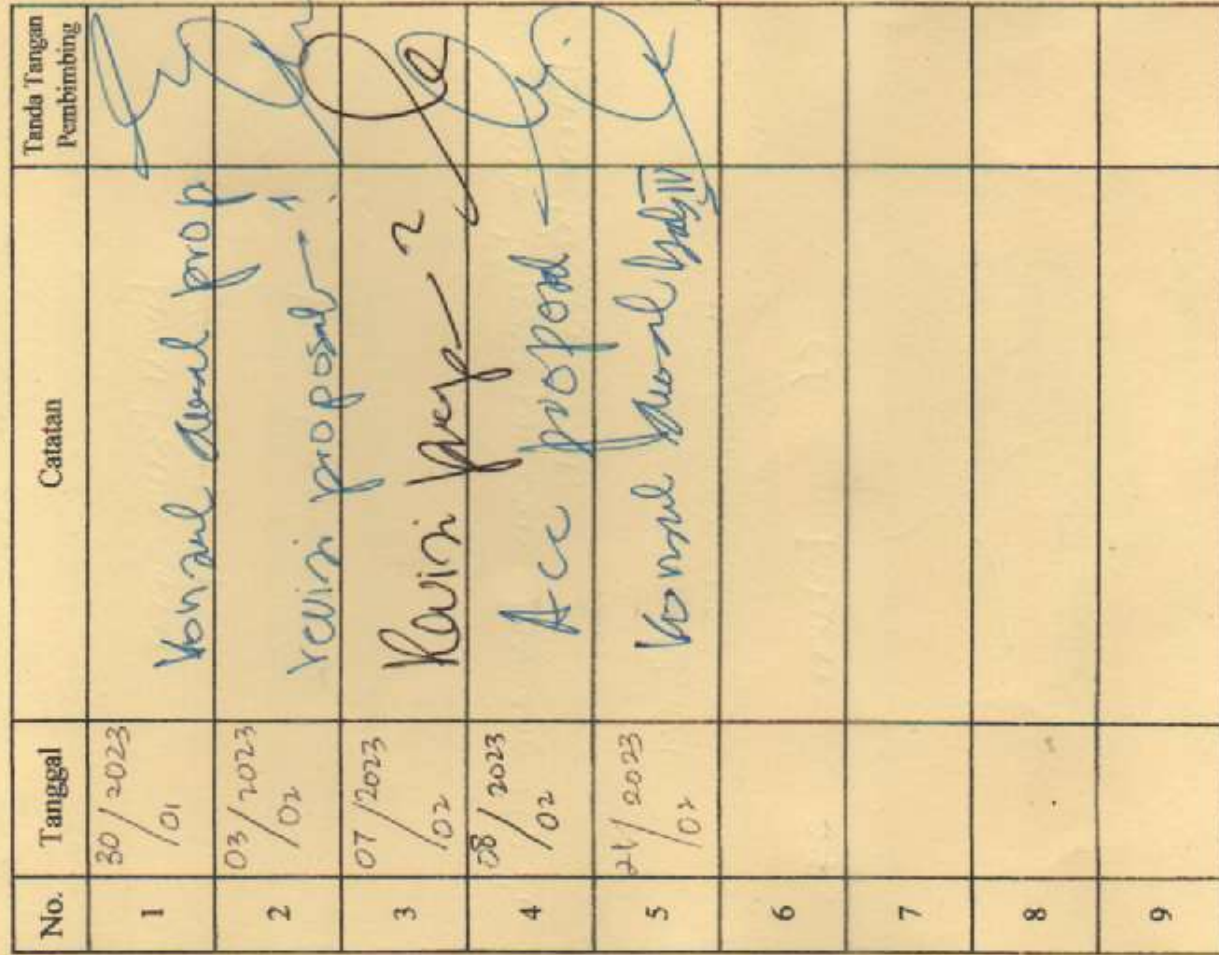 No. Tanggal Catatan Tanda Tangan Pembimbing
1 30/01/2023 Konsul awal prop
2 03/02/2023 revisi proposal - 1
3 07/02/2023 Revisi prop - 2
4 08/02/2023 Acc proposal -
5 21/02/2023 Konsul IV
6
7
8
9